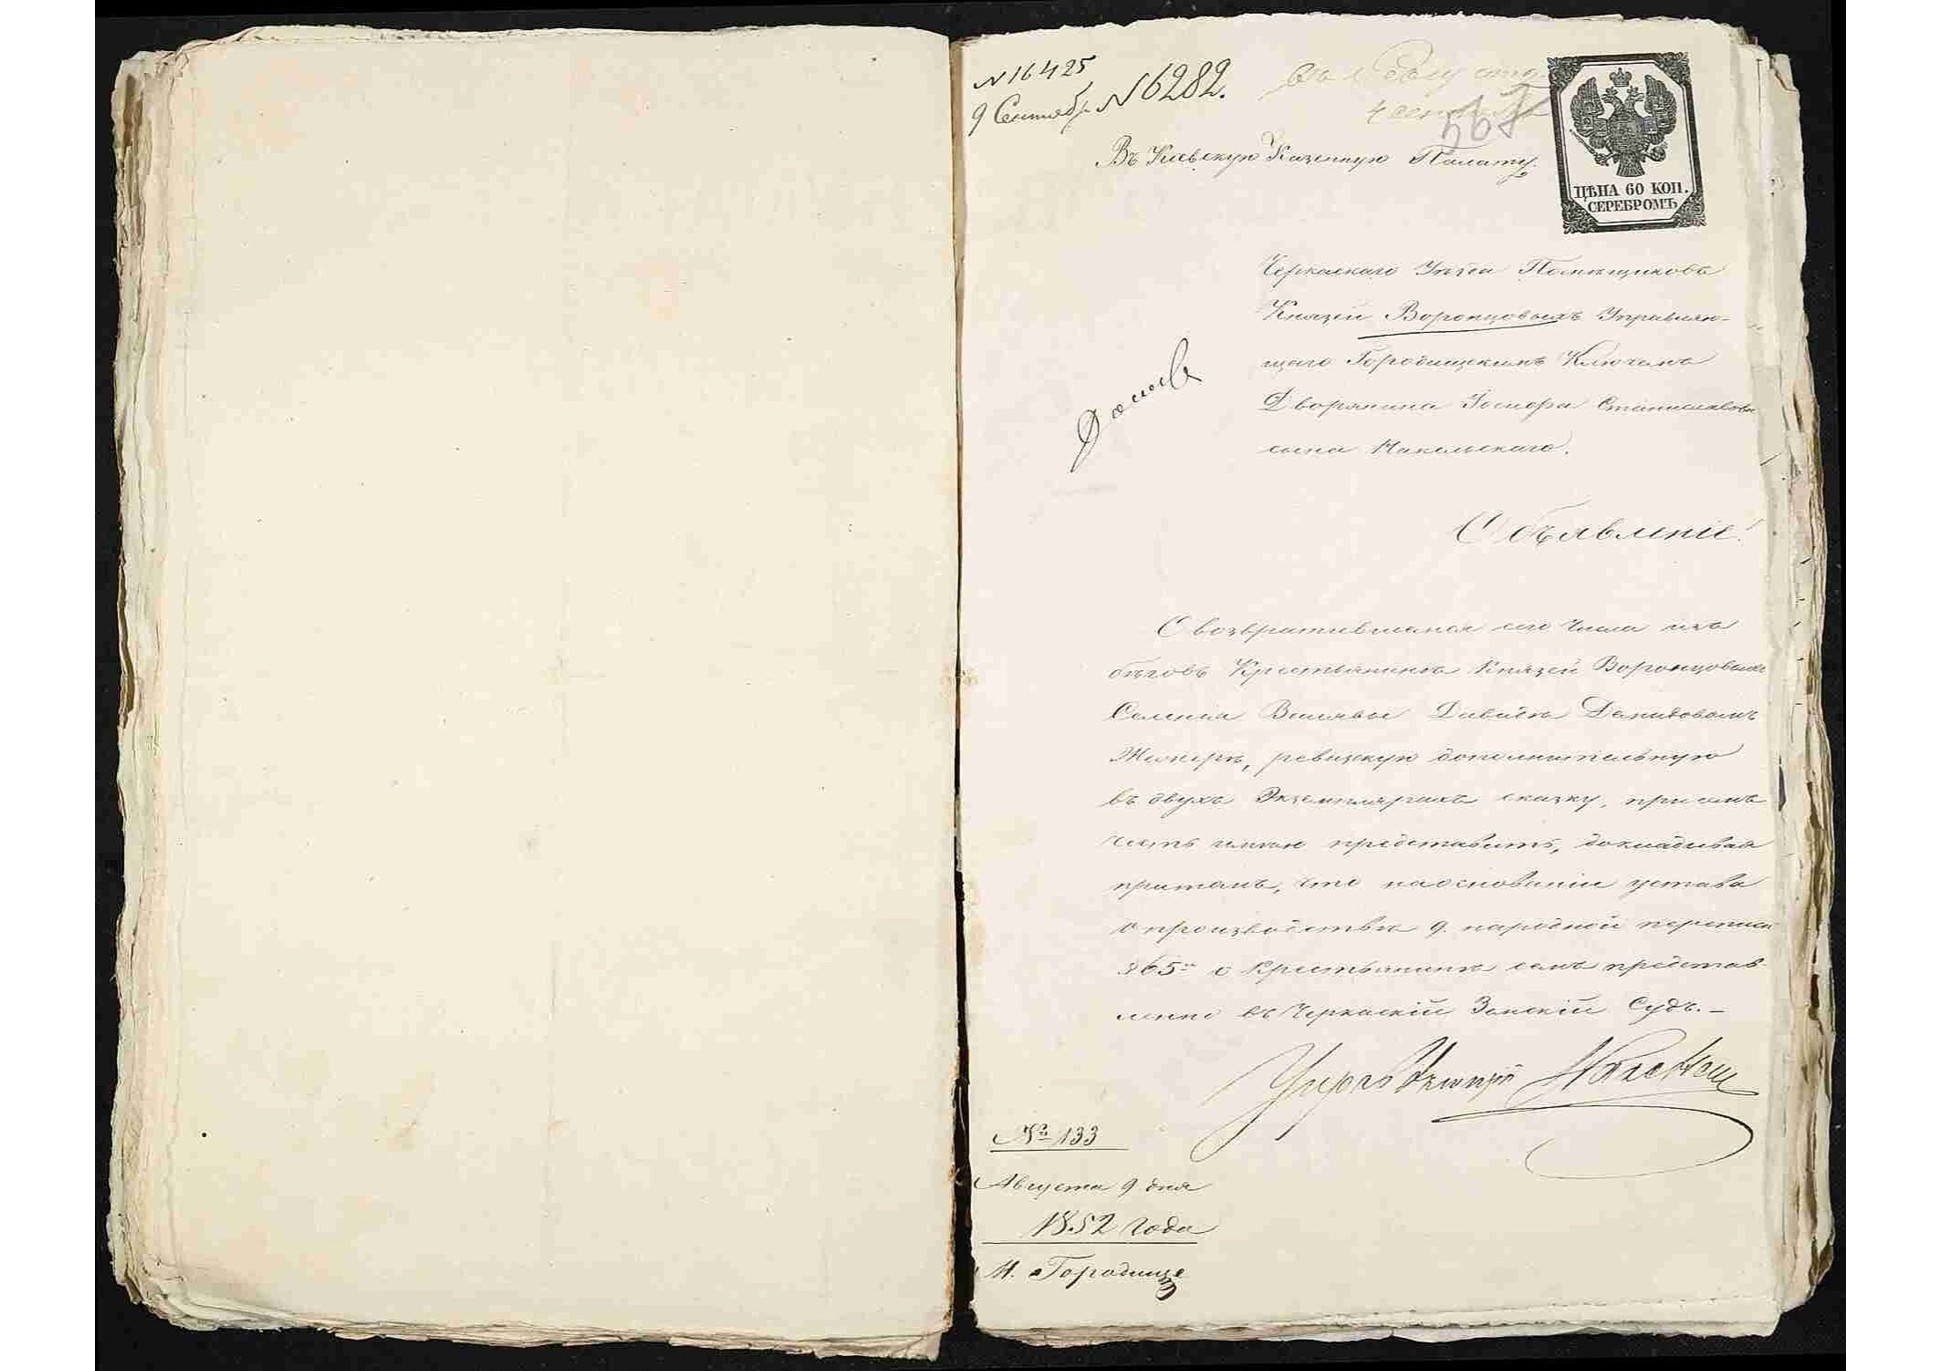 N 16425
9 Сентябр. N 6282.
567
Въ Кіевскую Казенную Палату.
ЦѢНА 60 КОП.
СЕРЕБРОМЪ
Черкаскаго Уѣзда Помѣщиковъ
Князей Воронцовыхъ Управляю-
щаго Городищскимъ Ключемъ
Дворянина Іосифа Станиславова
сына Накельскаго.
Объявленіе!
О возвратившемся сего числа изъ
бѣговъ Крестьянинѣ Князей Воронцовыхъ
Селенія Вялявы Давидѣ Демидовомъ
ревизкую дополнительную
въ двухъ Экземплярахъ сказку, при семъ
честь имѣю представить, докладывая
притомъ, что наоснованіи устава
о производствѣ 9. народной переписи
о Крестьянинѣ семъ представ-
лено въ Черкаскій Земскій Судъ.–
№ 133
Августа 9 дня
1852 года
М. Городище